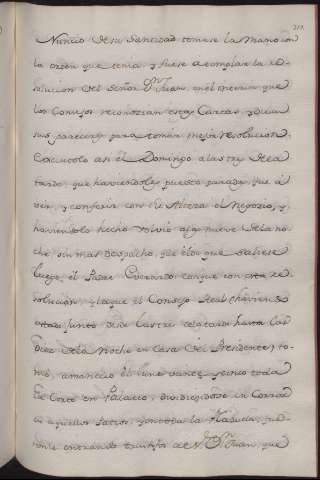 Nuncio de su Santidad tomase la mano con
la orden que tenia, y fuese a complar la re-
solucion del Señor Dn. Juan, en el interin que
los Consejos reconocian estas Cartas, y dieu
sus pareceres para tomar mejor resolucion;
Executolo asi el Domingo a las tres de la
tarde, que haviendole puesto parada, fue á
ver, y conferir con Su Alteza el Negocio, y
haviendolo hecho volvió a las nueve de la no-
che, sin mas despacho, que el de que saliese
luego, el Padre Everardo, conque con esta re-
solucion, y la que el Consejo Real (haviendo
estado junto desde las tres de la tarde hasta las
Diez de la Noche en casa del Presidente) to-
mó, amanecio el lunes veinte y cinco toda
la Corte en Palacio, dividiendose en Corros
en aquellos Patios, y en toda la Plazuela, pi-
diendo entrando quantos de el N. Dn. Juan, que